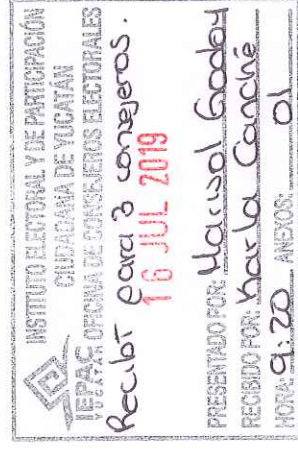 INSTITUTO ELECTORAL Y DE PARTICIPACIÓN
CIUDADANA DE YUCATÁN
IEPAC OFICINA DE CONSEJEROS ELECTORALES
YUCATÁN
Recibí para 3 consejeros.
16 JUL 2019
PRESENTADO POR: Marisol Godoy
RECIBIDO POR: Karla Canché
HORA: 9:20 ANEXOS: 01